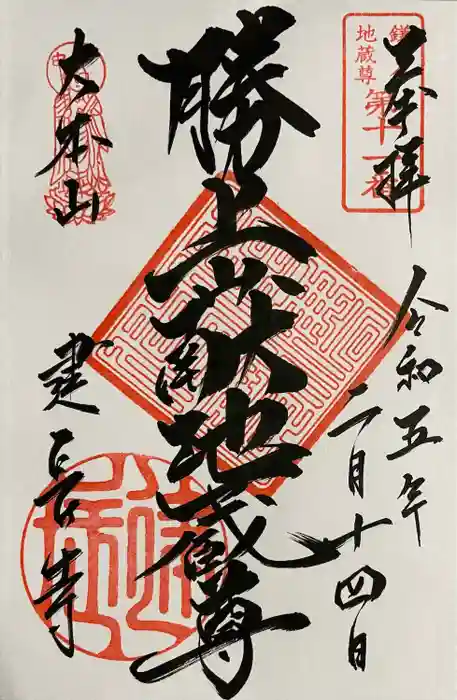 奉拝
鎌
地蔵尊
第十一番
令和五年
二月十四日
勝上献地蔵尊
大本山
建長寺